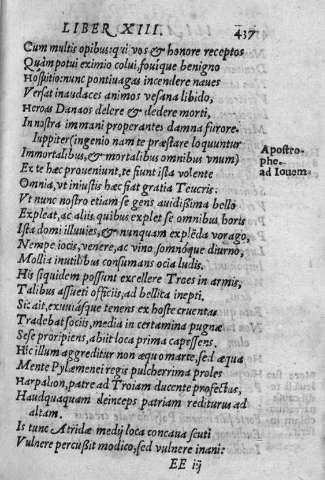 LIBER XIII. 437
Cum multis opibus: qui vos & honore receptos
Quàm potui eximio colui, fouique benigno
Hospitio: nunc pontiuagas incendere naues
Versat in audaces animos vesana libido,
Heroas Danaos delere & dedere morti,
In nostra immani properantes damna furore.
Iuppiter (ingenio nam te præstare loquuntur
Immortalibus, & mortalibus omnibus vnum)
Apostro-
phe
ad Iouem.
Ex te hæc proueniunt, te fiunt ista volente
Omnia, vt iniustis hæc fiat gratia Teucris:
Vt nunc nostro etiam se gens auidißima bello
Expleat, ac aliis quibus explet se omnibus horis
Ista domi illuuies, & nunquam explēda vorago,
Nempe iocis, venere, ac vino somnóque diurno,
Mollia inutilibus consumans ocia ludis.
His siquidem possunt excellere Troes in armis,
Talibus assueti officiis, ad bellica inepti.
Sic ait, exuuiásque tenens ex hoste cruentas
Tradebat sociis, media in certamina pugnæ
Sese proripiens, abiit loca prima capessens.
Hic illum aggreditur non æquo marte, sed æqua
Mente Pylæmenei regis pulcherrima proles
Harpalion, patre ad Troiam ducente profectus,
Haudquaquam deinceps patriam rediturus ad
altam.
Is tunc Atridæ medij loca concaua scuti
Vulnere percußit modico, sed vulnere inani:
EE iij